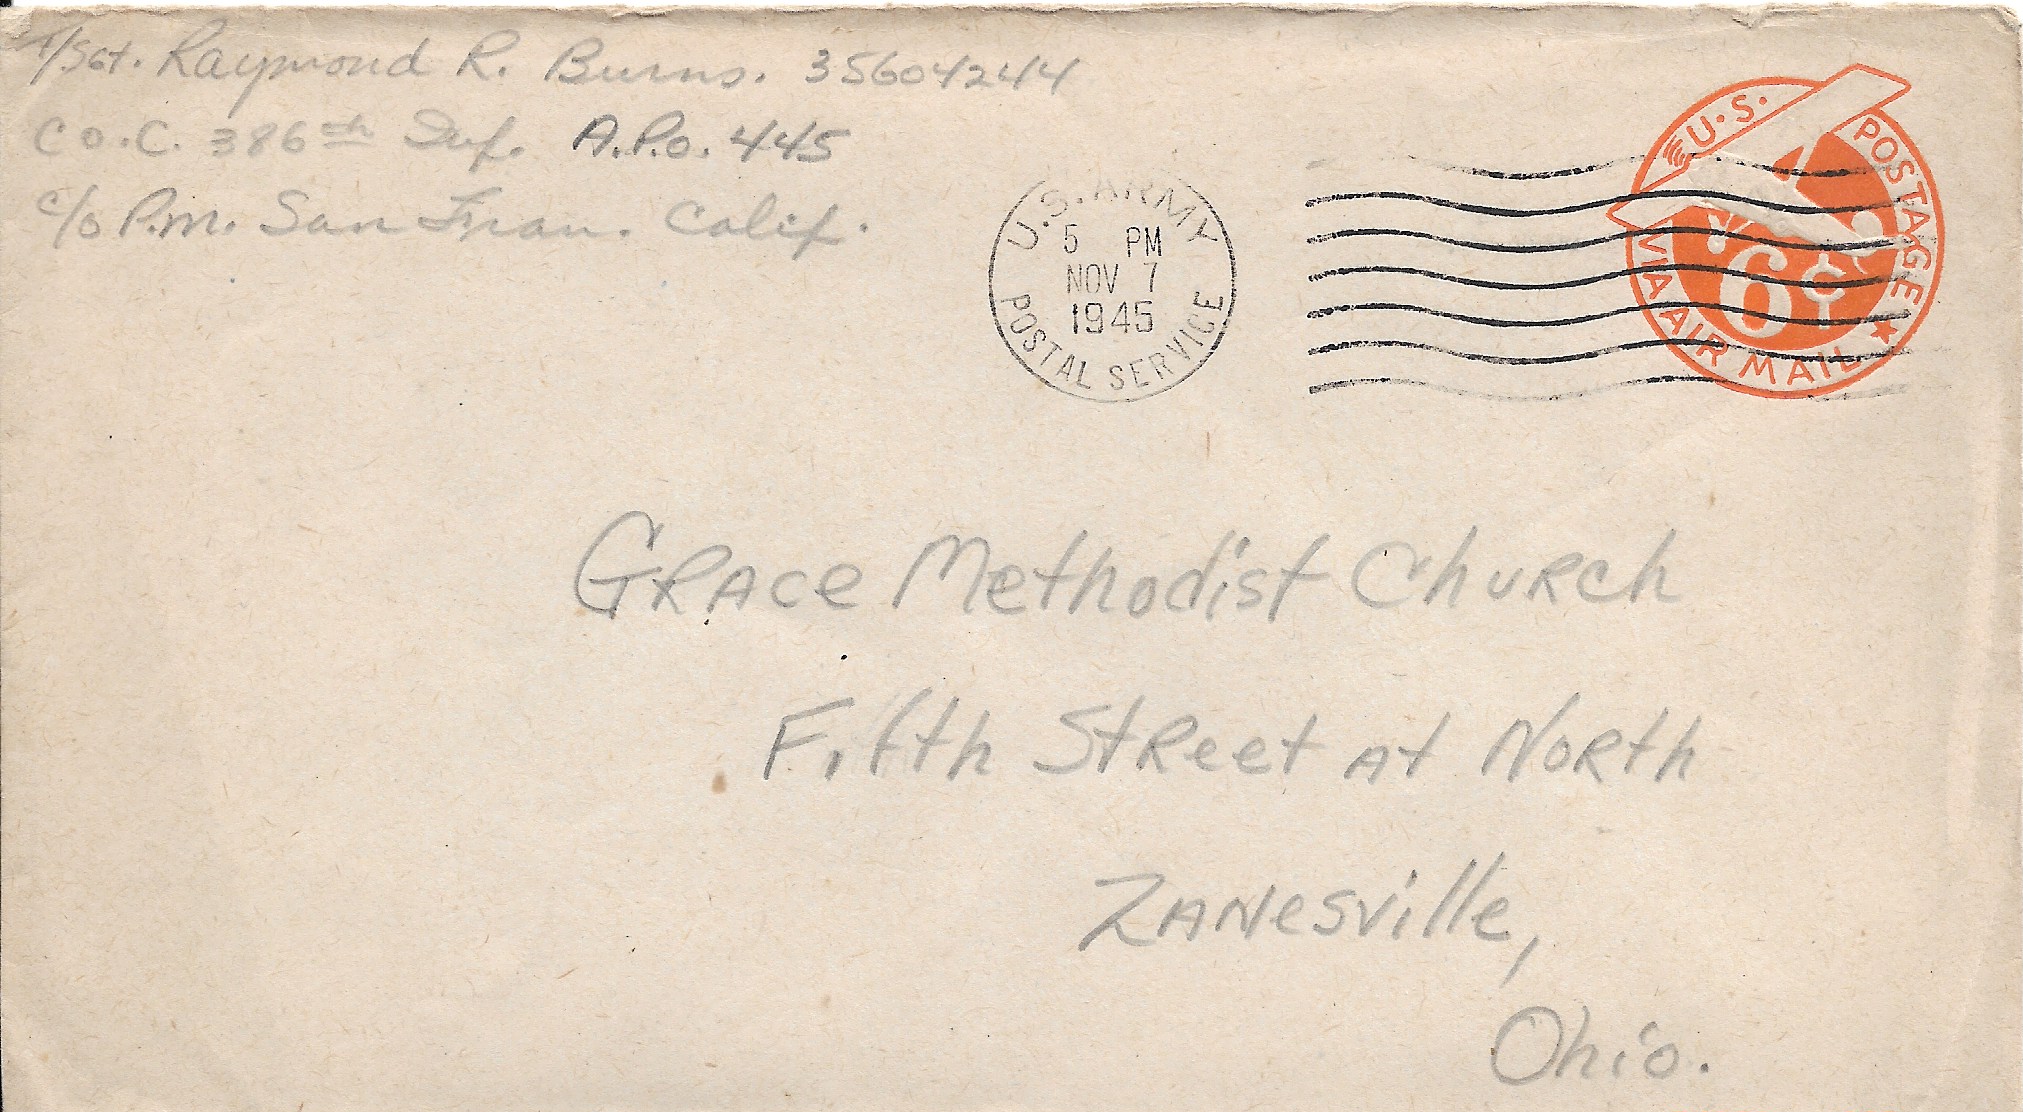 T/Sgt. Raymond R. Burns. 35604244
Co. C. 386th Inf. A.P.O. 445
c/o P.M. San Fran. Calif.
U.S. ARMY
5 PM
NOV 7
1945
POSTAL SERVICE
U.S. POSTAGE
6¢
VIA AIR MAIL
Grace Methodist Church
Fifth Street at North
Zanesville,
Ohio.